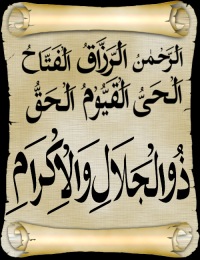 اَلرَّحْمٰنُ اَلرَّزَّاقُ اَلْفَتَّاحُ
اَلْحَیُّ الْقَیُّوْمُ اَلْحَقُّ
ذُوالْجَلَالِ وَالْاِكْرَامِ